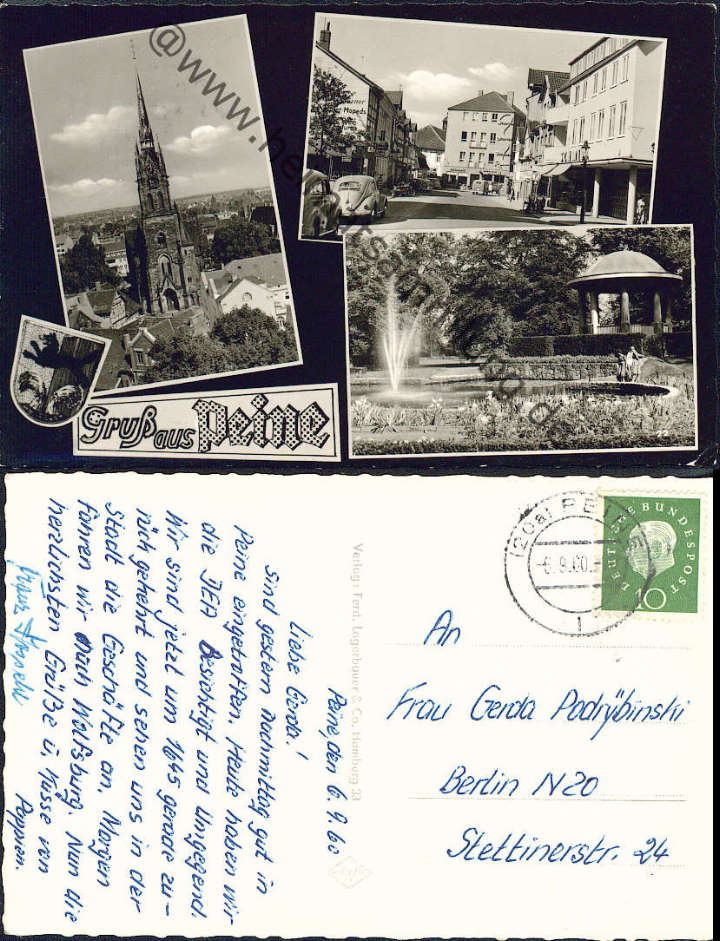 Gruß aus Peine
Peine, den 6. 9. 60
Liebe Gerda!
Sind gestern Nachmittag gut in
Peine eingetroffen. Heute haben wir
die JEA Besichtigt und Umgegend.
Wir sind jetzt um 1645 gerade zu-
rück gekehrt und sehen uns in der
Stadt die Geschäfte an. Morgen
fahren wir nach Wolfsburg. Nun die
herzlichsten Grüße u. Küsse von
Pappien.
Verlag: Ferd. Lagerbauer & Co. Hamburg 23
(20a) PEINE
-6.9.60.
1
DEUTSCHE BUNDESPOST
10
An
Frau Gerda Podrÿbinski
Berlin N20
Stettinerstr. 24